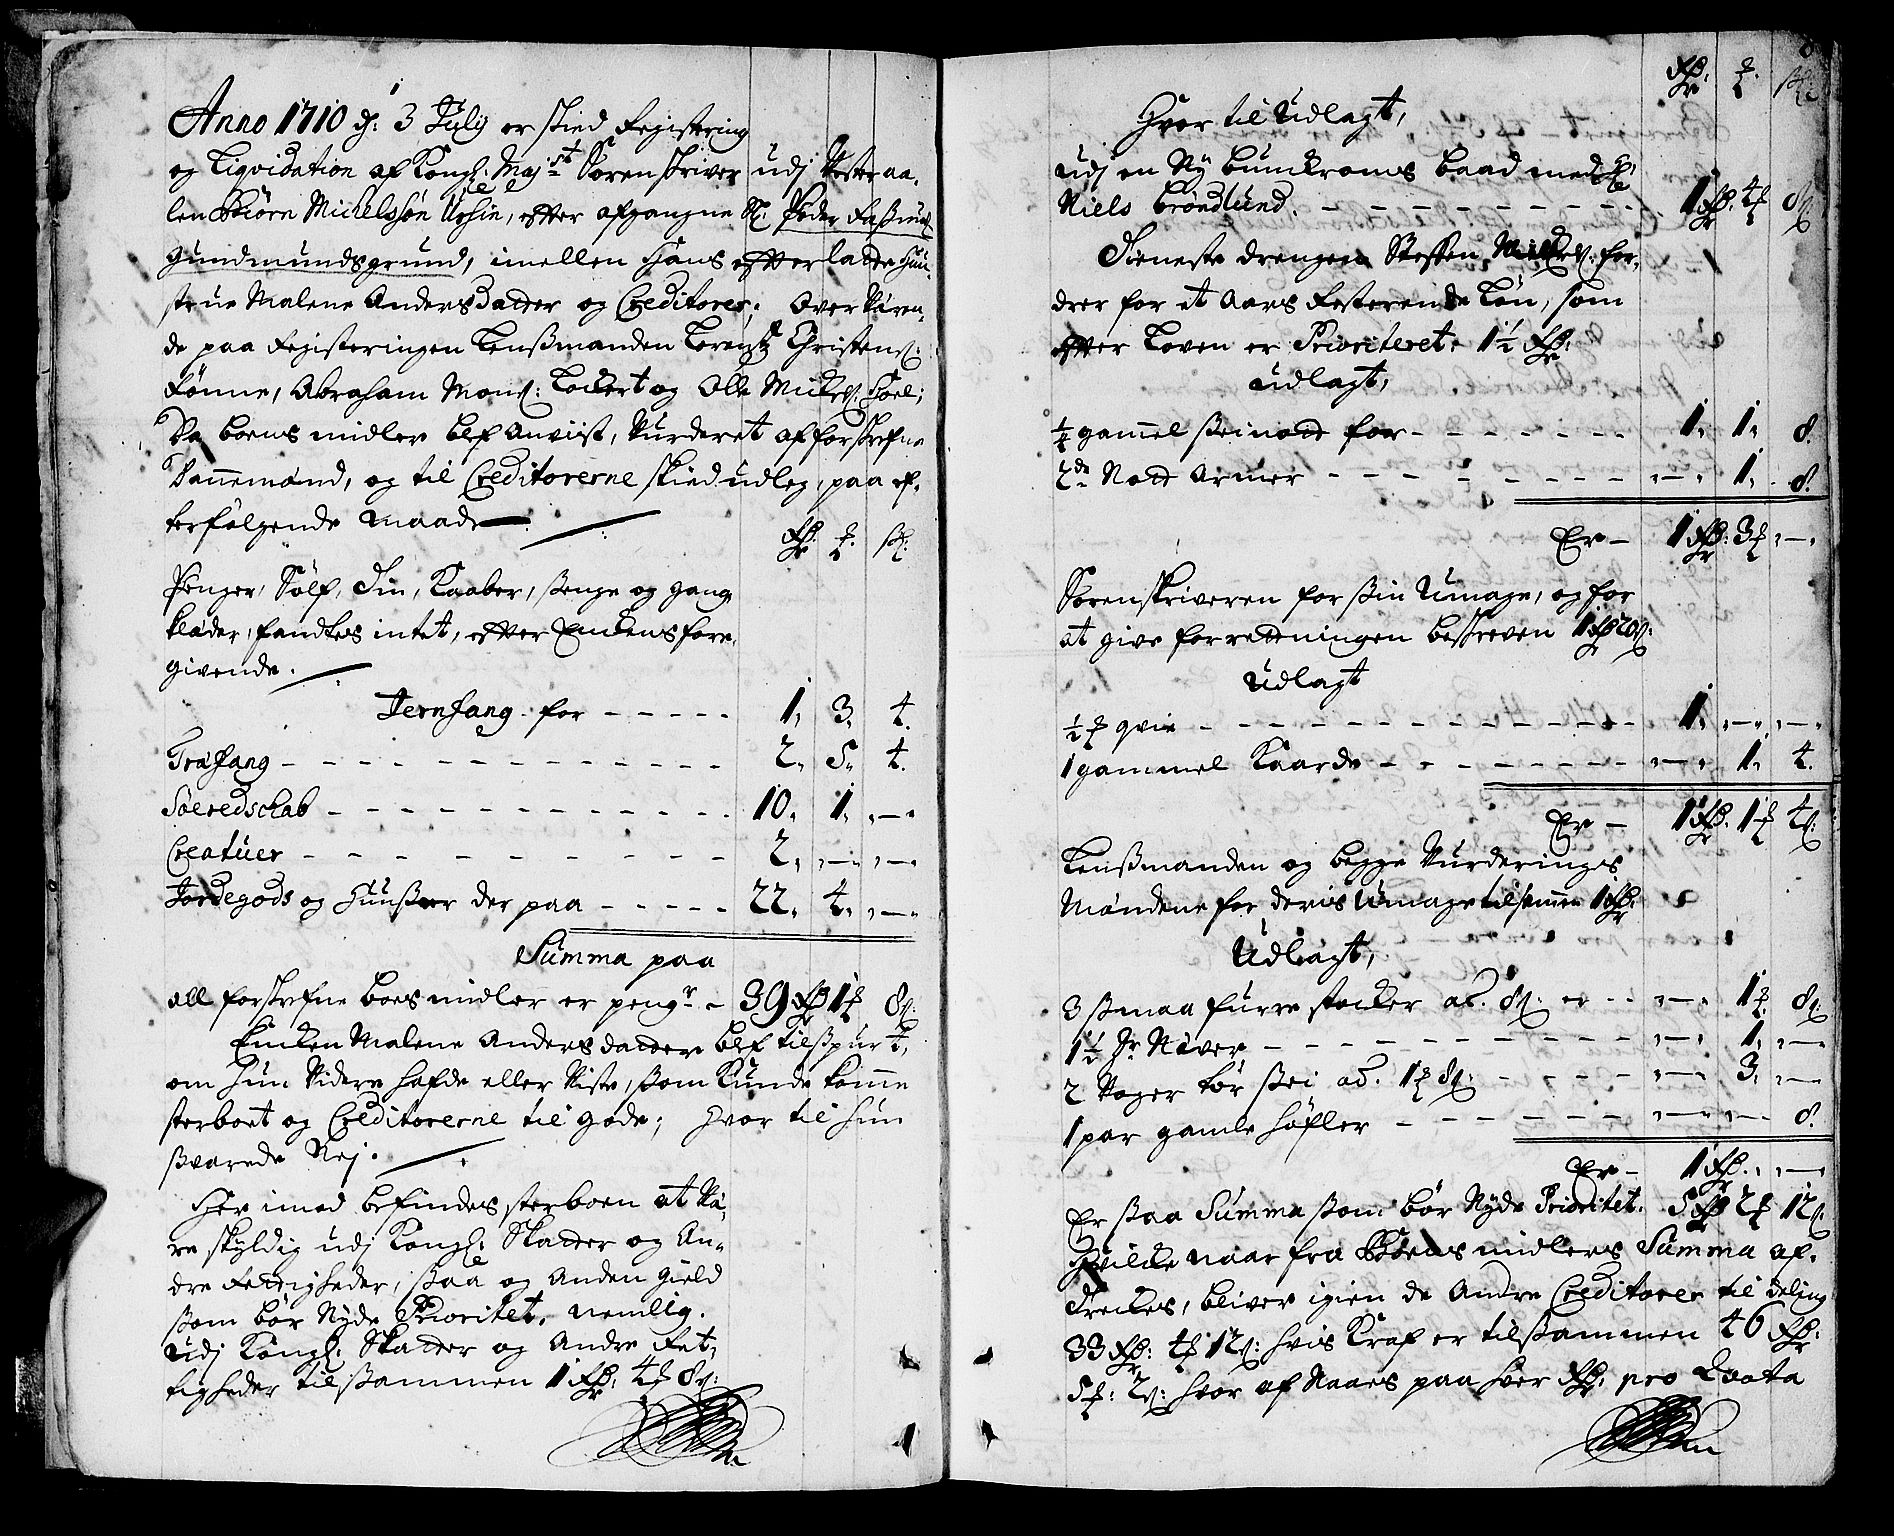 Anno 1710 d: 3 July er skied Registering
og Liqvidation af Kongl: Mayst Sorenskriver udj Vesteraa-
len Biørn Michelssøn Ursin, efter afgangne Sl: Peder
Gundmundsgrund, imellen Hans efterladte Hu-
strue Malene Andersdatter og Creditorer. Overværen-
de paa Registeringen Lenßmanden Lorentz Christens:
Rønne, Abraham Mons: Lockert og Olle Mickels: Hoel;
Da boens midler blef Anvist, Vurderet af forskrefne
Dannemænd, og til Creditorerne skied udleg, paa ef-
terfølgende maade
Rdr: ʒ: sk:
Penger, Sølf, Tin, Kaaber, senge og gang
klæder, fandtes intet, efter Enckens fore-
givende.
Jernfang for - - - - - 1, 3, 4.
Træfang - - - - - 2, 5, 4.
Søeredschab - - - - - 10, 1, -
Creatuer - - - - - 2, -, -
Jordegods og Huußer der paa - - - - - 22, 4, -
Summa paa
all forskrefne boes midler er pengr - 39 Rdr 1 ʒ 8 s:
Encken Malene Andersdatter blef tilspurt,
om hun Videre hafde eller Viste, som Kunde komme
sterboet og Creditorerne til gode; Hvor til hun
svarede Nej.
Her imod befindes sterboen at Væ-
re skyldig udj Kongl: Skatter og An-
dre Rettigheder, saa og Anden gield
som bør Nyde Prioritet, nemlig.
Udj Kongl: Skatter og Andre Ret-
tigheder tilsammen 1 Rdr: 4 ʒ 8 s:
Rdr: ʒ: sk:
Hvor til Udlagt,
udj en Ny baad med
Niels Brøndlund. - - - - - 1 Rdr: 4 ʒ 8 s
Tieneste drengen Steffen for-
drer for et Aars Resterende Løn, som
efter Loven er Prioriteret. 1½ Rdr:
udlagt,
¼ gammel seinott for - - - - - 1, 1, 8.
2de Nott Armer - - - - - -, 1, 8.
Er - 1 Rdr: 3 ʒ, -
Sorenskriveren for sin Umage, og for
at give forretningen beskreven 1 Rdr 20 s:
Udlagt
½ ʒ qvie - - - - - 1, -, -
1 gammel Kaarde - - - - - -, 1, 4.
Er - 1 Rdr. 1 ʒ 4 s:
Lenßmanden og begge Vurderings
Mændene for deris Umage tilsammen 1 Rdr:
Udlagt,
3 smaa furre stocker ad. 8 s: er - - -, 1 ʒ 8 s:
1½ Næver - - - - - -, 1, -
2 Voger tør sei ad. 1 ʒ 8 s: - - - - -, 3, -
1 par gamle - - - - - -, -, 8.
Er - 1 Rdr., -
Er saa Summa som bør Nyde Prioritet. 5 Rdr 2 ʒ 12 s:
Hvilcke naar fra Boens midlers Summa af-
treckes, bliver igien de Andre Creditorer til deling
33 Rdr: 4 ʒ 12 s: hvis Kraf er tilsammen 46 Rdr:
5 ʒ: 2 s: hvor af Naaes paa hver Rdr: pro Qvota